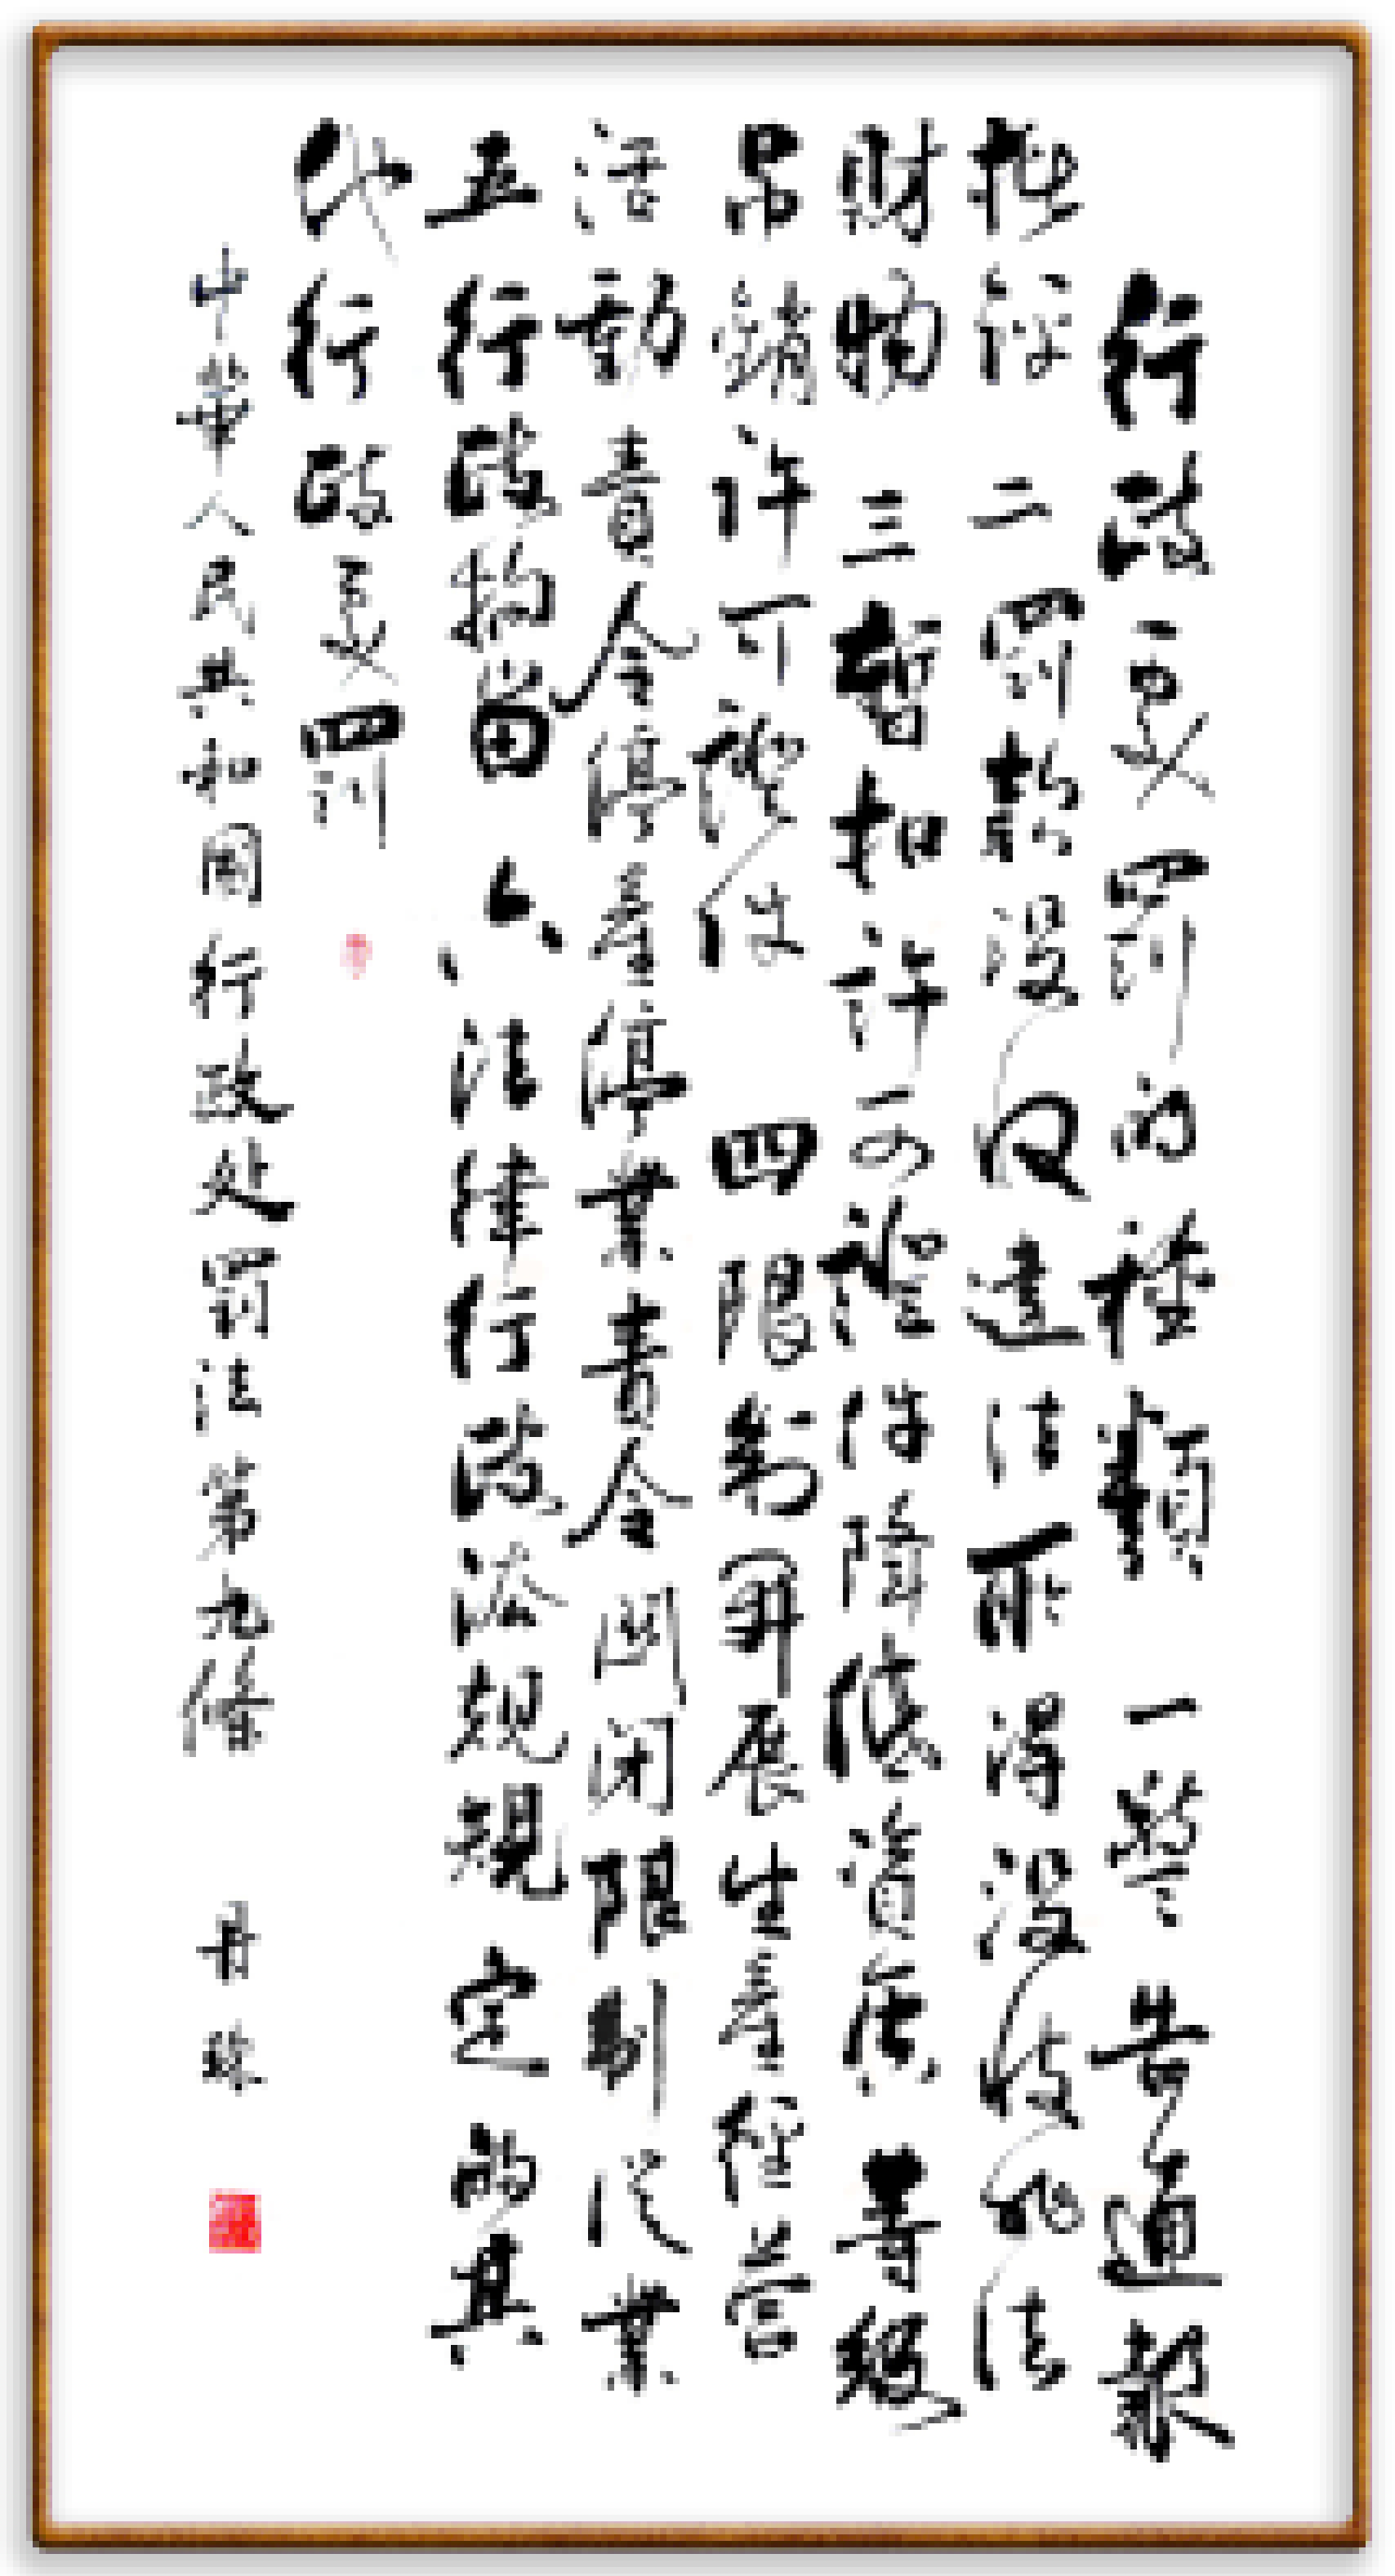 行政處罰的種類 一警告通報
批評 二罰款沒收違法所得沒收非法
財物 三暫扣許可證件降低資質等級
吊銷許可證件 四限制開展生產經營
活動責令停產停業責令關閉限制從業
五行政拘留 六法律行政法規規定的其
他行政處罰
中華人民共和國行政处罰法第九條 丹